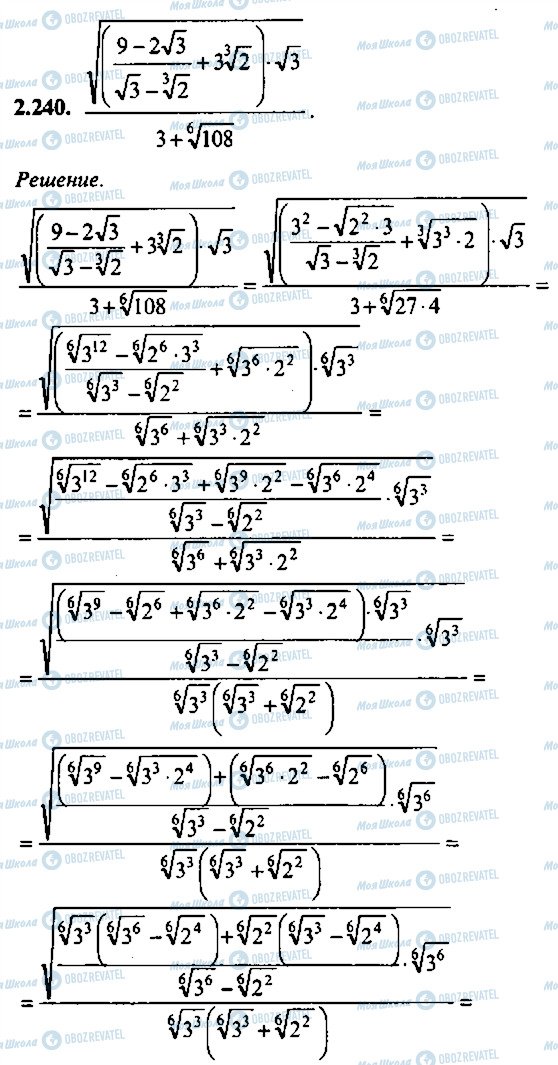 2.240. \frac{\sqrt{\left(\frac{9-2\sqrt{3}}{\sqrt{3}-\sqrt[3]{2}}+3\sqrt[3]{2}\right)\cdot\sqrt{3}}}{3+\sqrt[6]{108}}.
Решение.
\frac{\sqrt{\left(\frac{9-2\sqrt{3}}{\sqrt{3}-\sqrt[3]{2}}+3\sqrt[3]{2}\right)\cdot\sqrt{3}}}{3+\sqrt[6]{108}}=\frac{\sqrt{\left(\frac{3^2-\sqrt{2^2\cdot 3}}{\sqrt{3}-\sqrt[3]{2}}+\sqrt[3]{3^3\cdot 2}\right)\cdot\sqrt{3}}}{3+\sqrt[6]{27\cdot 4}}=
=\frac{\sqrt{\left(\frac{\sqrt[6]{3^{12}}-\sqrt[6]{2^6\cdot 3^3}}{\sqrt[6]{3^3}-\sqrt[6]{2^2}}+\sqrt[6]{3^6\cdot 2^2}\right)\cdot\sqrt[6]{3^3}}}{\sqrt[6]{3^6}+\sqrt[6]{3^3\cdot 2^2}}=
=\frac{\sqrt{\frac{\sqrt[6]{3^{12}}-\sqrt[6]{2^6\cdot 3^3}+\sqrt[6]{3^9\cdot 2^2}-\sqrt[6]{3^6\cdot 2^4}}{\sqrt[6]{3^3}-\sqrt[6]{2^2}}\cdot\sqrt[6]{3^3}}}{\sqrt[6]{3^6}+\sqrt[6]{3^3\cdot 2^2}}=
=\frac{\sqrt{\frac{\left(\sqrt[6]{3^9}-\sqrt[6]{2^6}+\sqrt[6]{3^6\cdot 2^2}-\sqrt[6]{3^3\cdot 2^4}\right)\cdot\sqrt[6]{3^3}}{\sqrt[6]{3^3}-\sqrt[6]{2^2}}\cdot\sqrt[6]{3^3}}}{\sqrt[6]{3^3}\left(\sqrt[6]{3^3}+\sqrt[6]{2^2}\right)}=
=\frac{\sqrt{\frac{\left(\sqrt[6]{3^9}-\sqrt[6]{3^3\cdot 2^4}\right)+\left(\sqrt[6]{3^6\cdot 2^2}-\sqrt[6]{2^6}\right)}{\sqrt[6]{3^3}-\sqrt[6]{2^2}}\cdot\sqrt[6]{3^6}}}{\sqrt[6]{3^3}\left(\sqrt[6]{3^3}+\sqrt[6]{2^2}\right)}=
=\frac{\sqrt{\frac{\sqrt[6]{3^3}\left(\sqrt[6]{3^6}-\sqrt[6]{2^4}\right)+\sqrt[6]{2^2}\left(\sqrt[6]{3^3}-\sqrt[6]{2^4}\right)}{\sqrt[6]{3^6}-\sqrt[6]{2^2}}\cdot\sqrt[6]{3^6}}}{\sqrt[6]{3^3}\left(\sqrt[6]{3^3}+\sqrt[6]{2^2}\right)}=